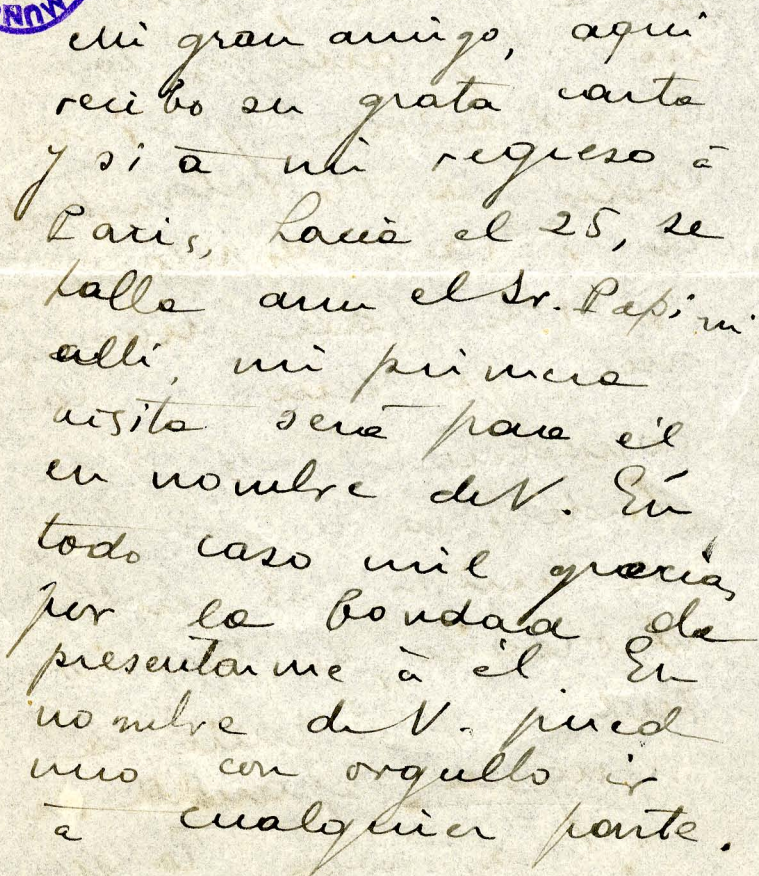 MUN
Mi gran amigo, aqui
recibo su grata carta
y si à mi regreso à
Paris, hacia el 25, se
halla aun el Sr. Papini
alli, mi primera
visita será para él
en nombre de V. En
todo caso mil gracias
por la bondad de
presentarme à él En
nombre de V. pued
uno con orgullo ir
à cualquier parte.